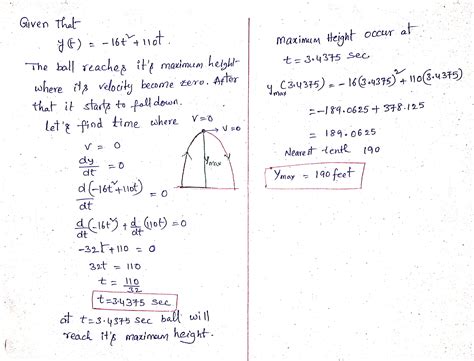 Given That
y(t) = -16t² + 110t.
The ball reaches it's maximum height
where its velocity become zero. After
that it starts to fall down.
Let's find time where v=0
v = 0
dy/dt = 0
d(-16t²+110t)/dt = 0
d/dt(-16t²) + d/dt(110t) = 0
-32t + 110 = 0
32t = 110
t = 110/32
t = 3.4375 sec
at t = 3.4375 sec ball will
reach it's maximum height.
v=0
→ v=0
ymax
maximum Height occur at
t = 3.4375 sec
ymax(3.4375) = -16(3.4375)² + 110(3.4375)
= -189.0625 + 378.125
= 189.0625
Nearest tenth 190
ymax = 190 feet